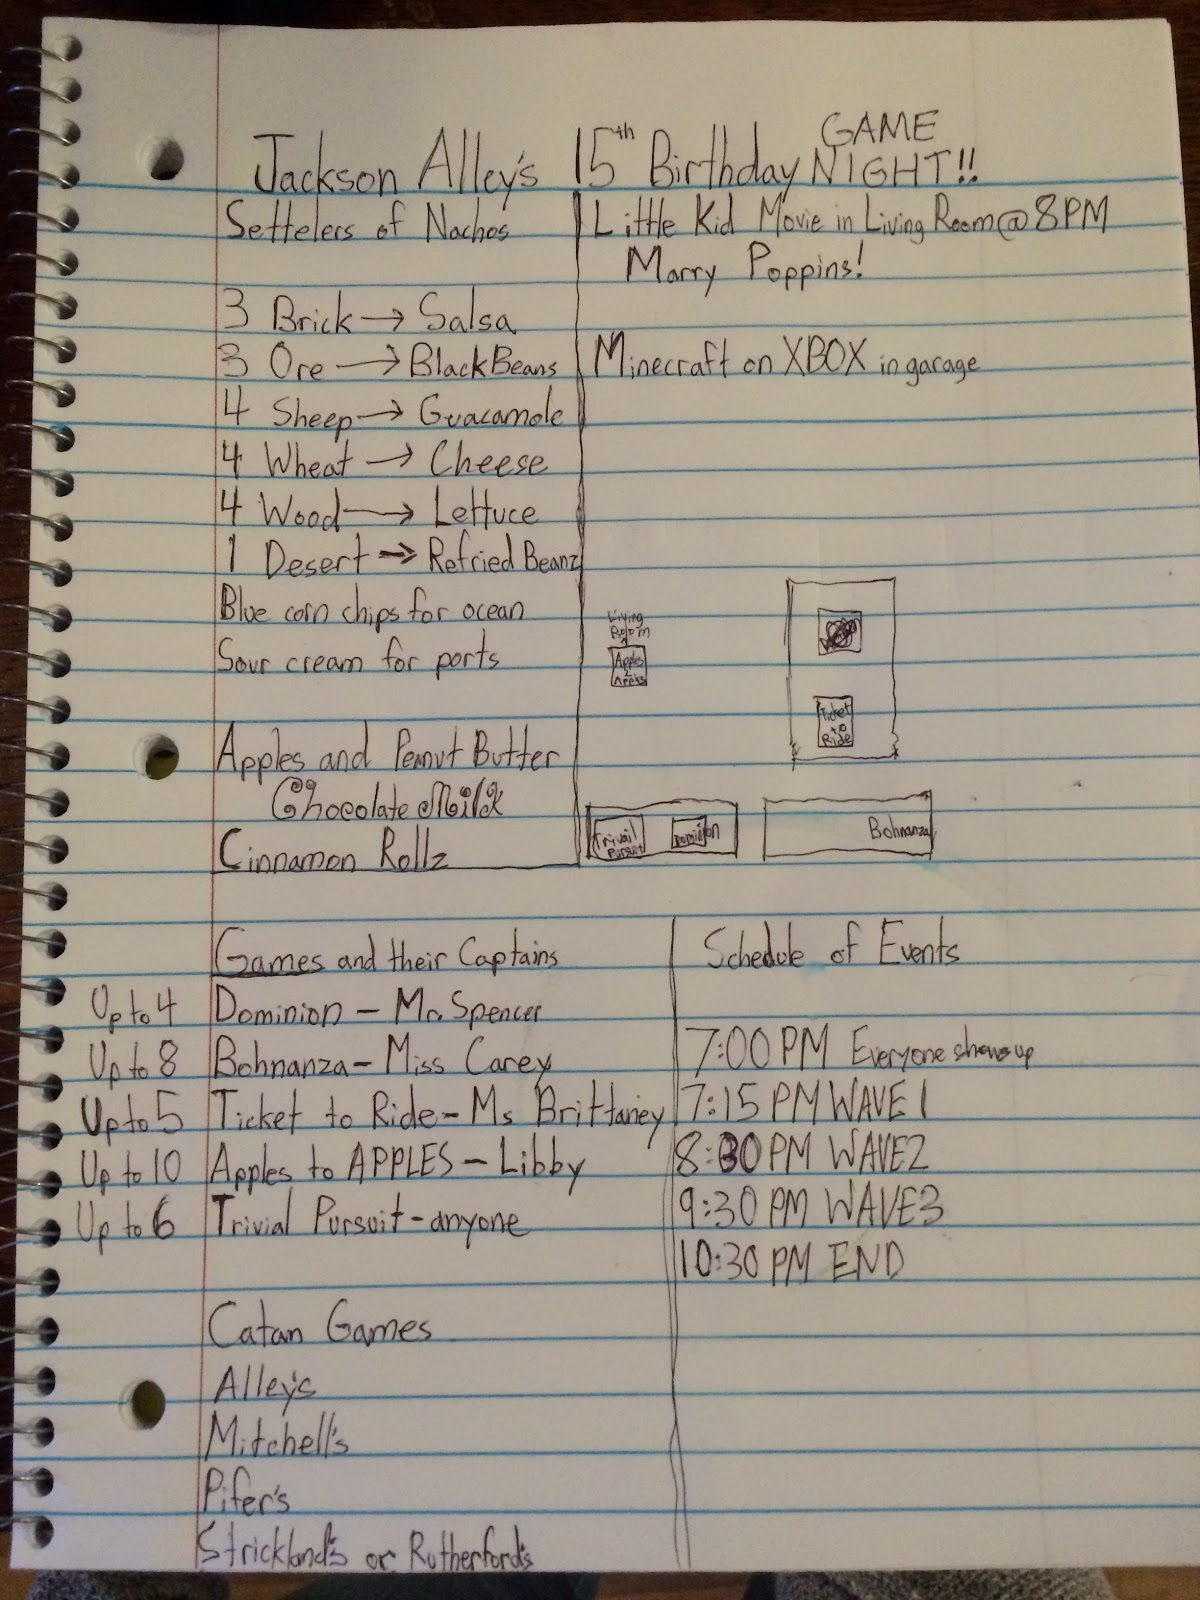 Jackson Alley's 15th Birthday GAME NIGHT!!
Settelers of Nachos
3 Brick → Salsa
3 Ore → Black Beans
4 Sheep → Guacamole
4 Wheat → Cheese
4 Wood → Lettuce
1 Desert → Refried Beanz
Blue corn chips for ocean
Sour cream for ports
Apples and Peanut Butter
Chocolate Milk
Cinnamon Rollz
Little Kid Movie in Living Room @ 8PM
Marry Poppins!
Minecraft on XBOX in garage
Living
Room
Apples
2
Apples
Ticket
to
Ride
Trivail
Pursuit
Dominion
Bohnanza
Games and their Captains
Up to 4 Dominion - Mr. Spencer
Up to 8 Bohnanza - Miss Carey
Up to 5 Ticket to Ride - Ms Brittaney
Up to 10 Apples to APPLES - Libby
Up to 6 Trivial Pursuit - anyone
Schedule of Events
7:00 PM Everyone shows up
7:15 PM WAVE 1
8:30 PM WAVE 2
9:30 PM WAVE 3
10:30 PM END
Catan Games
Alley's
Mitchell's
Pifer's
Strickland's or Rutherford's